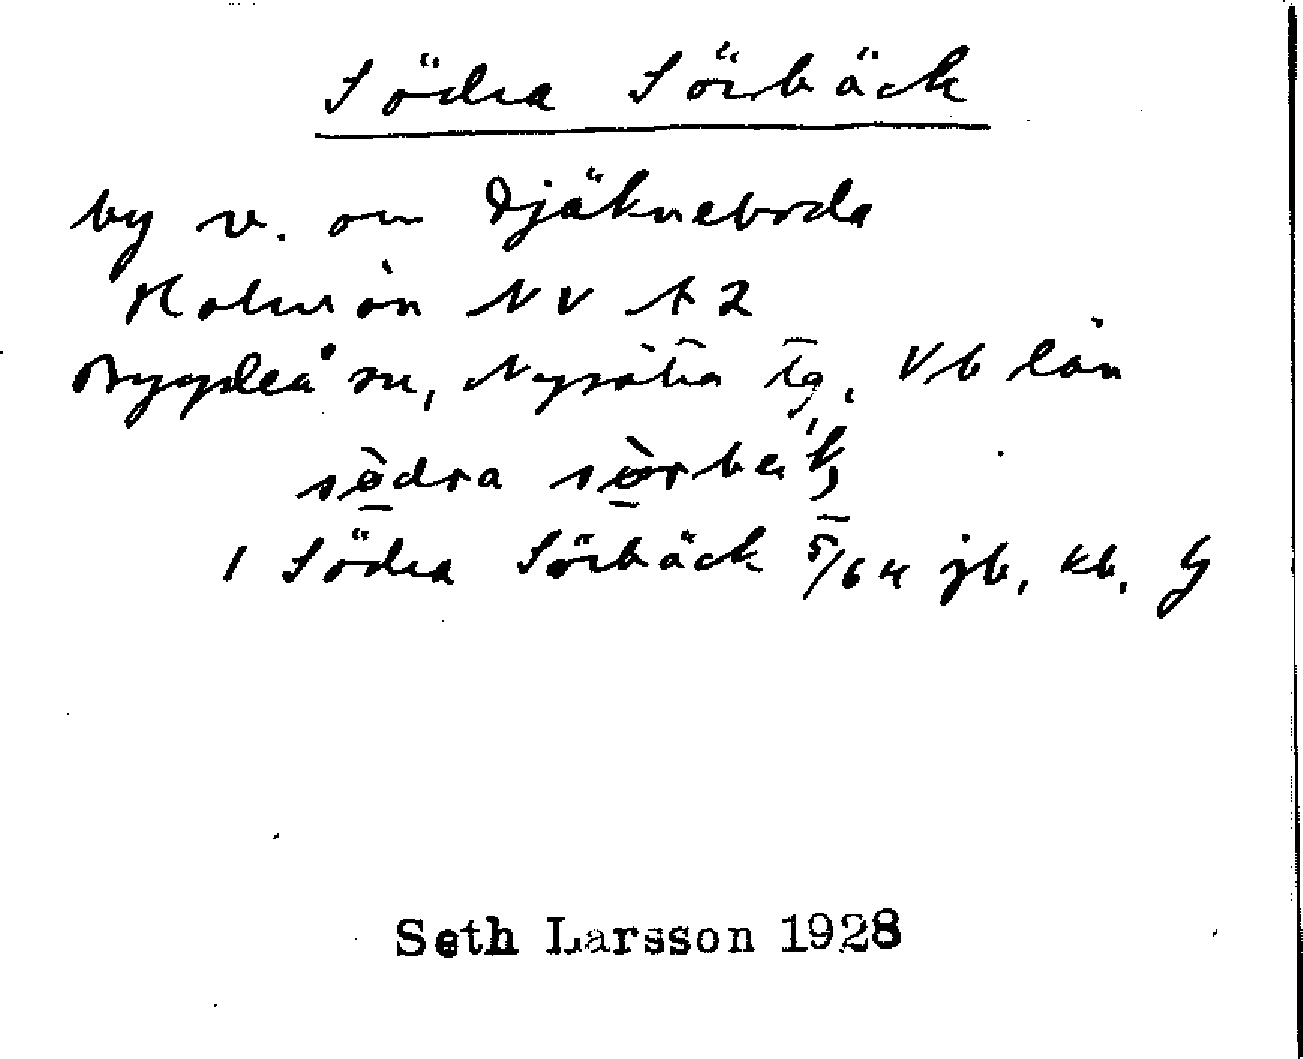 Södra Sörbäck
by v. om Djäkneboda
Holmön NV A2
Bygdeå sn, Nysätra tg. Vb län
södra sörbäk
1 Södra Sörbäck 5/64 jb, kb. G
Seth Larsson 1928